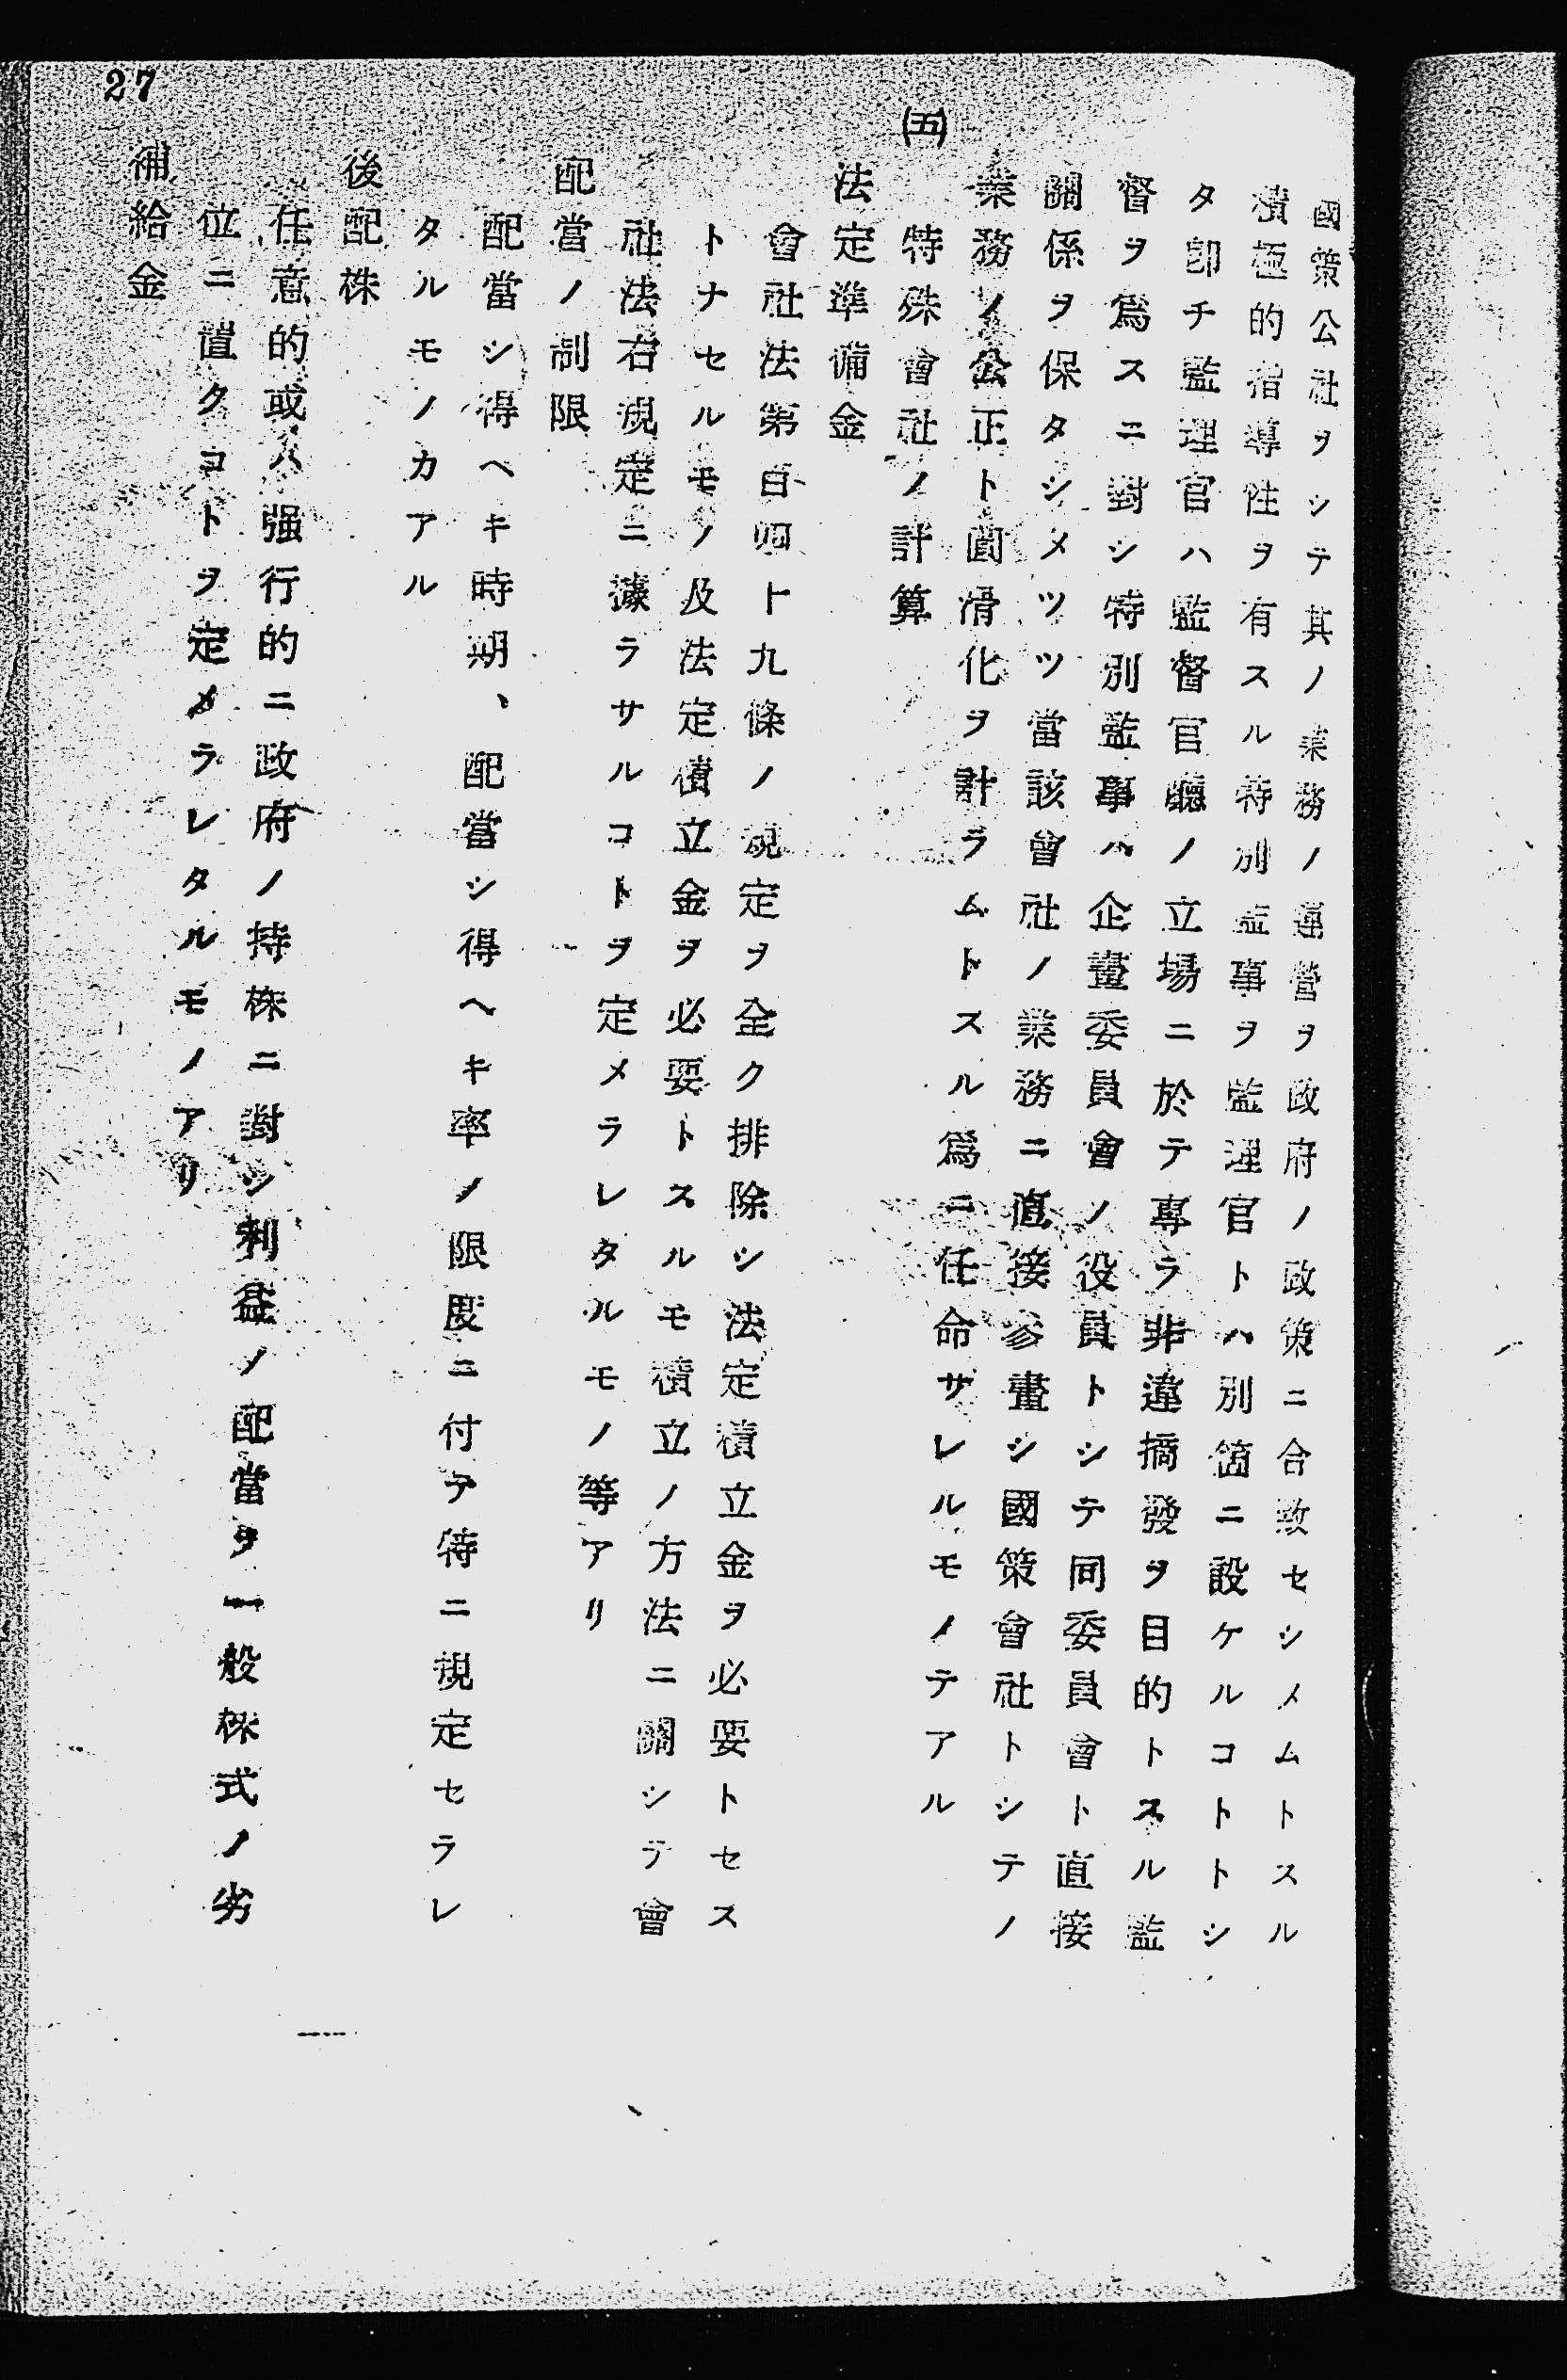 國策公社ヲシテ其ノ業務ノ運營ヲ政府ノ政策ニ合致セシメムトスル
積極的指導性ヲ有スル特別監事ヲ監理官トハ別箇ニ設ケルコトトシ
タ卽チ監理官ハ監督官廳ノ立場ニ於テ專ラ非違摘發ヲ目的トスル監
督ヲ爲スニ對シ特別監事ハ企畫委員會ノ役員トシテ同委員會ト直接
關係ヲ保タシメツツ當該會社ノ業務ニ直接參畫シ國策會社トシテノ
業務ノ公正ト圓滑化ヲ計ラムトスル爲ニ任命サレルモノテアル
(五)
特殊會社ノ計算
法定準備金
會社法第百四十九條ノ規定ヲ全ク排除シ法定積立金ヲ必要トセス
トナセルモノ及法定積立金ヲ必要トスルモ積立ノ方法ニ關シテ會
社法右規定ニ據ラサルコトヲ定メラレタルモノ等アリ
配當ノ制限
配當シ得ヘキ時期、配當シ得ヘキ率ノ限度ニ付テ特ニ規定セラレ
タルモノカアル
後配株
任意的或ハ强行的ニ政府ノ持株ニ對シ利益ノ配當ヲ一般株式ノ劣
位ニ置クコトヲ定メラレタルモノアリ
補給金
27